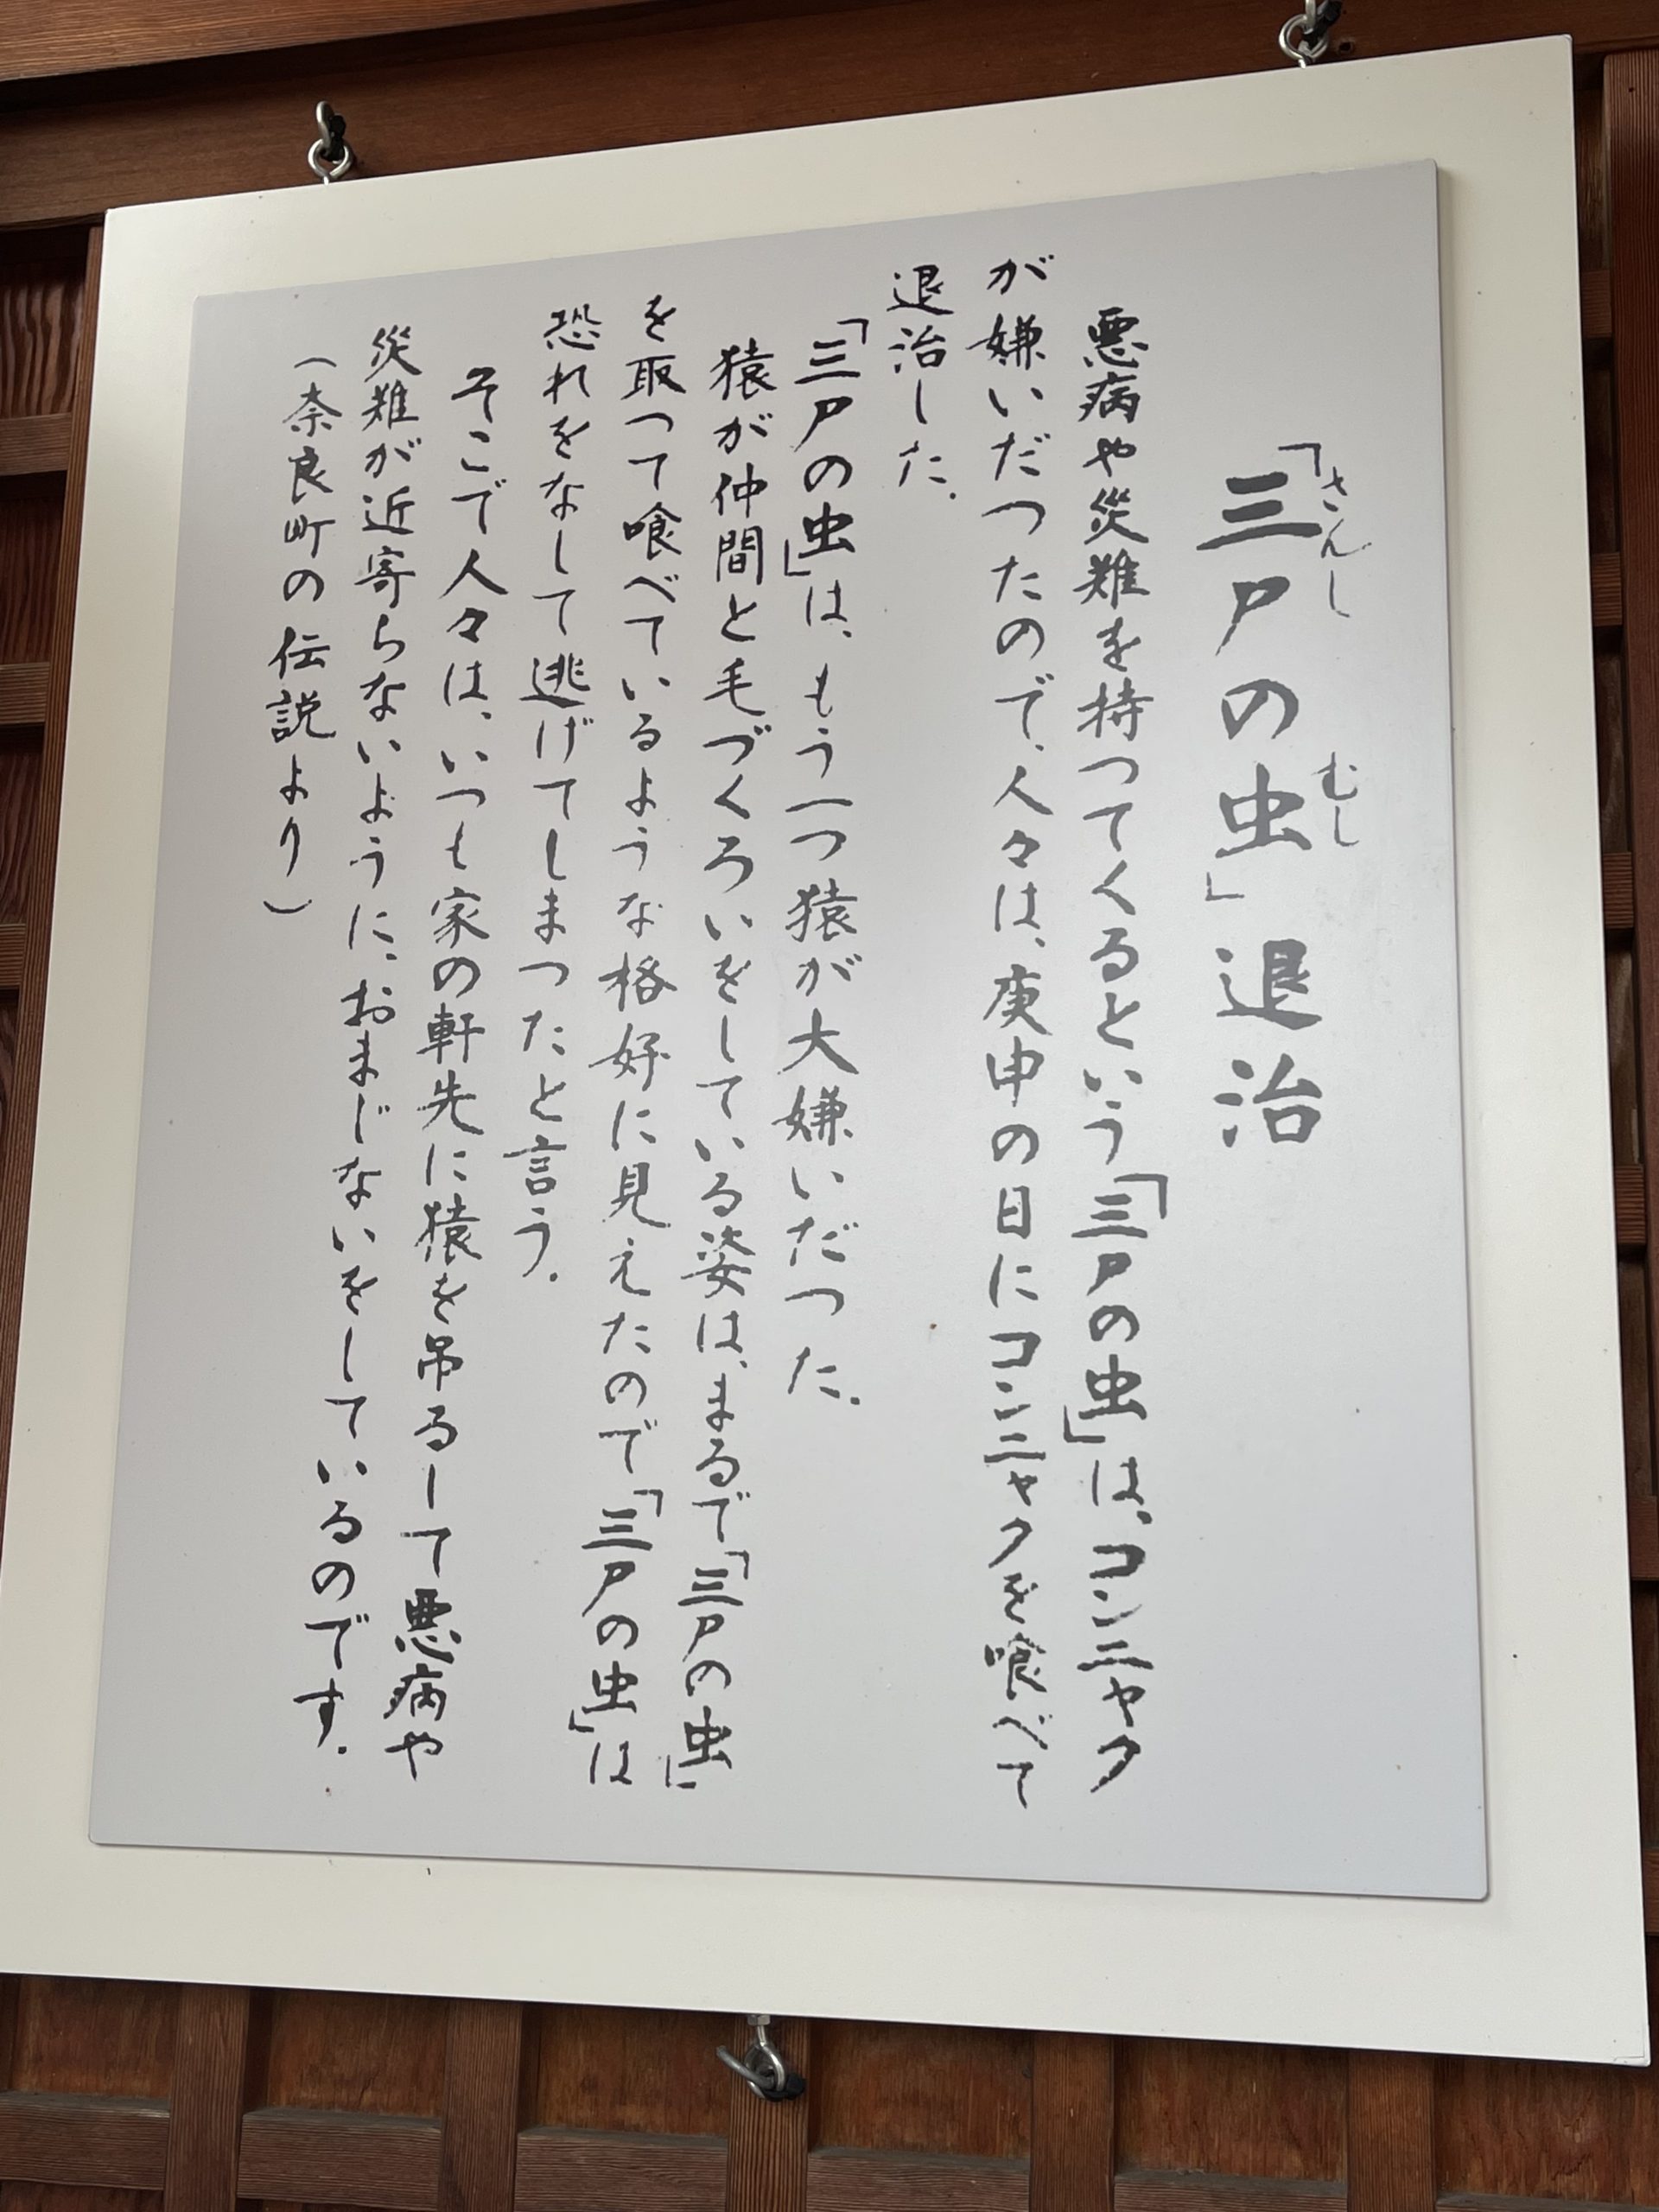 「三尸の虫」退治
さんし　むし
悪病や災難を持つてくるという「三尸の虫」は、コンニャク
が嫌いだつたので、人々は、庚申の日にコンニャクを喰べて
退治した。
「三尸の虫」は、もう一つ猿が大嫌いだつた。
猿が仲間と毛づくろいをしている姿は、まるで「三尸の虫」に
を取つて喰べているような格好に見えたので「三尸の虫」は
恐れをなして逃げてしまつたと言う。
そこで人々は、いつも家の軒先に猿を吊るして悪病や
災難が近寄らないように、おまじないをしているのです。
（奈良町の伝説より）